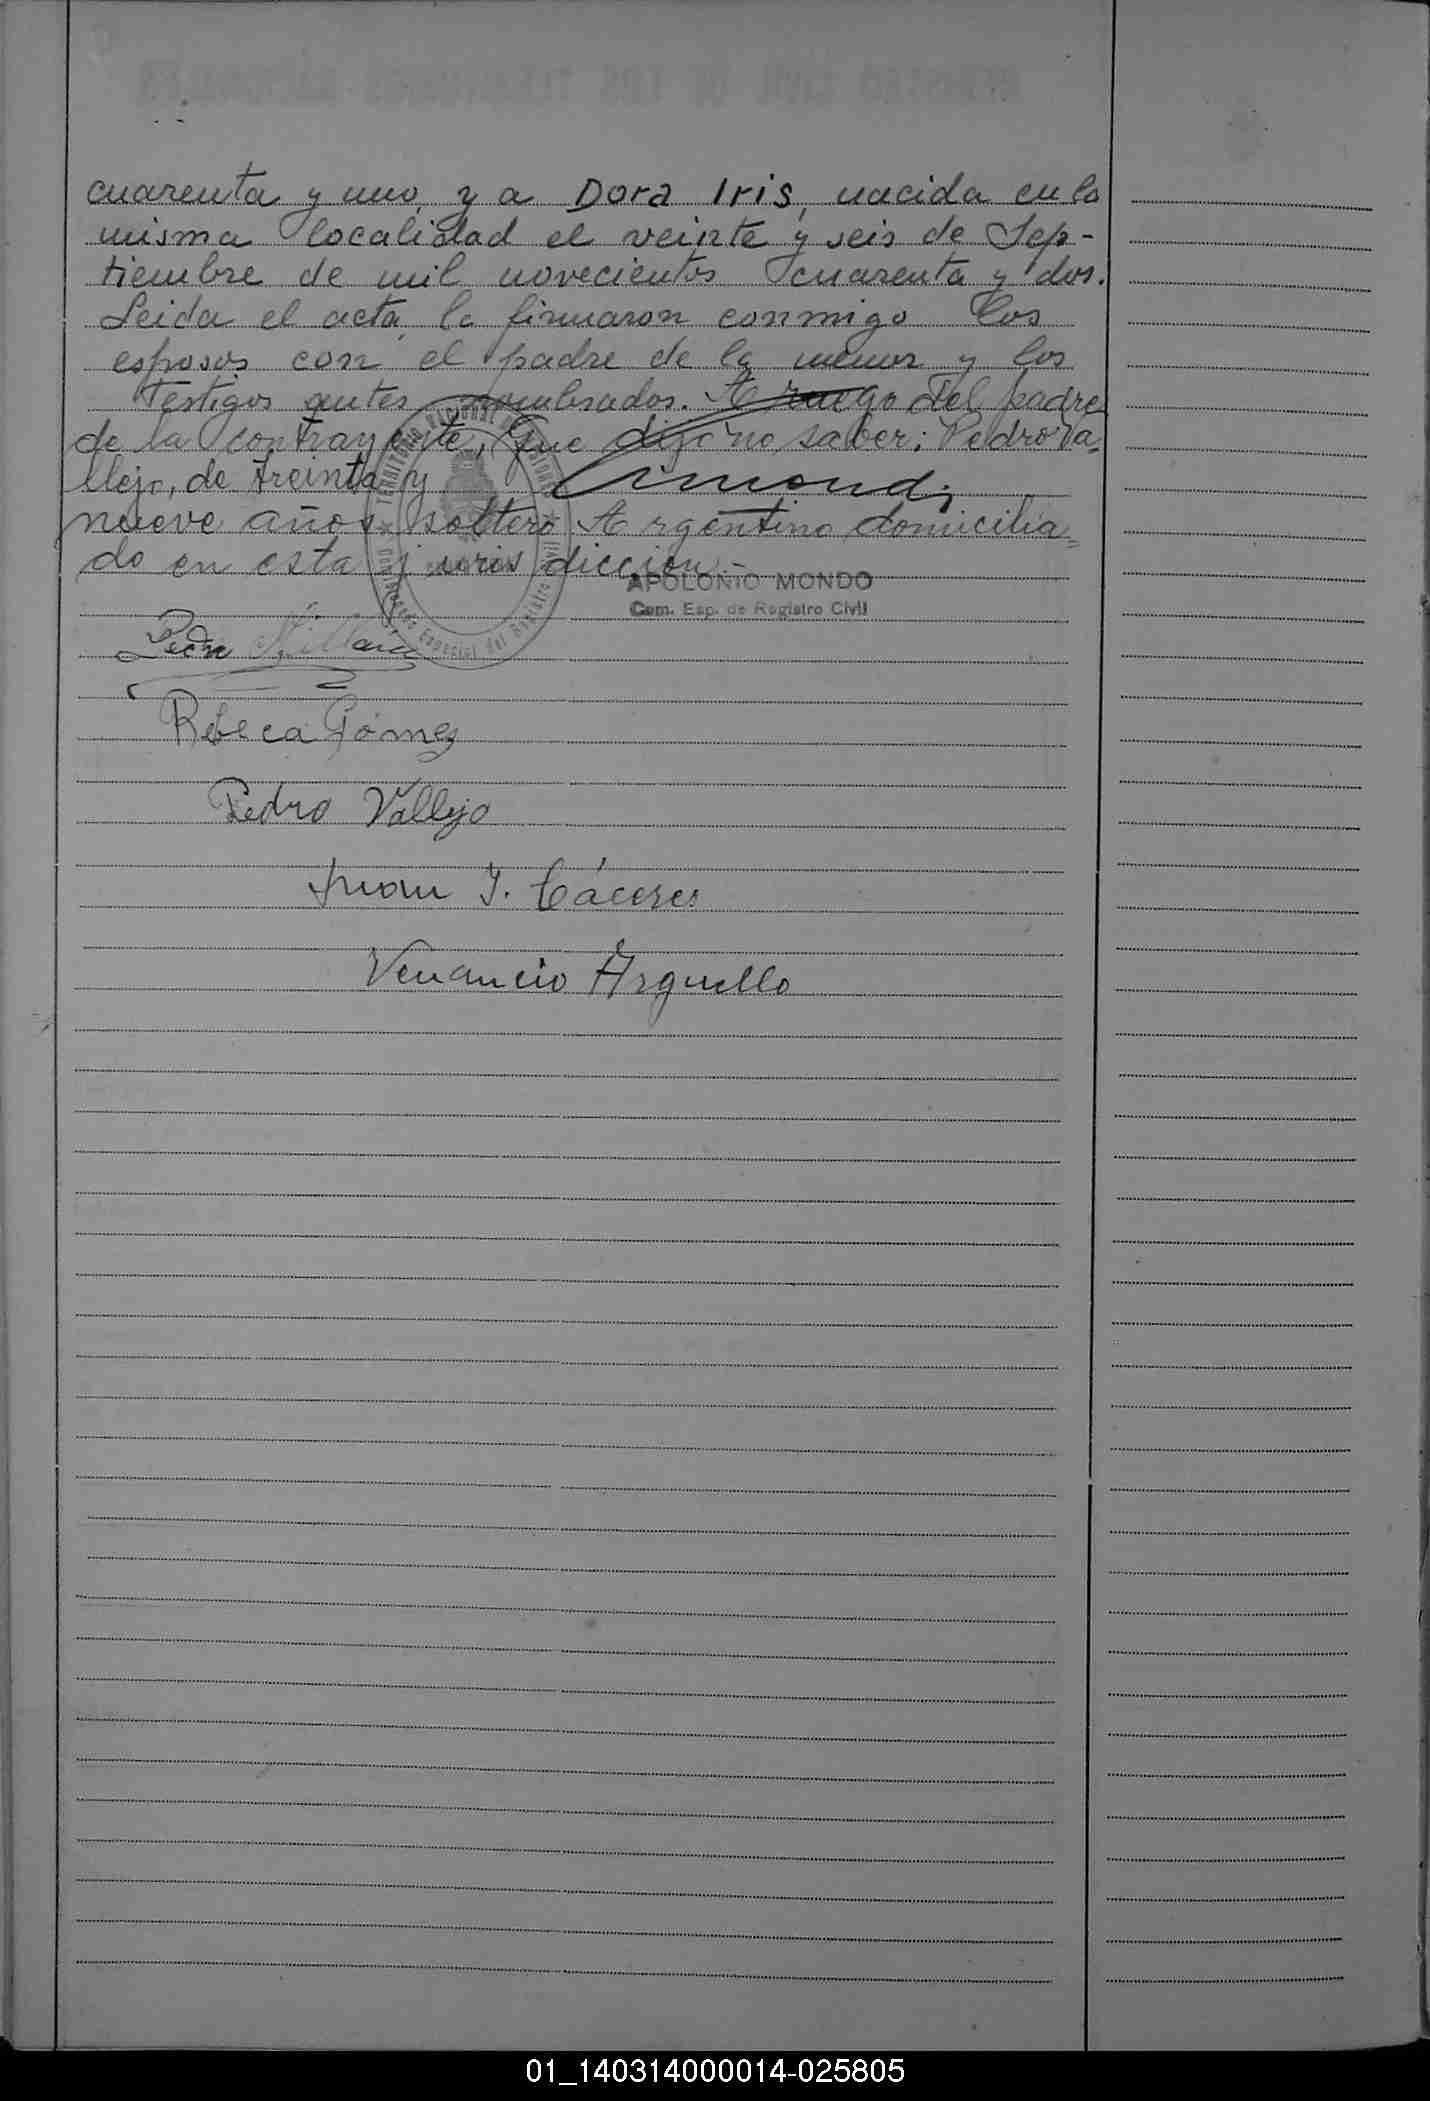 cuarenta y uno, y a Dora Iris, nacida en la
misma localidad el veinte y seis de Sep-
tiembre de mil novecientos cuarenta y dos.
Leida el acta, la firmaron conmigo los
esposos con el padre de la menor y los
testigos antes nombrados. A ruego del padre
de la contrayente, que dijo no saber; Pedro Va=
llejo, de treinta y
nueve años, soltero Argentino domicilia=
do en esta jurisdiccion.-
TERRITORIO NACIONAL
Especial del Registro Civil
APOLONIO MONDO
Com. Esp. de Registro Civil
Pedro
Rebeca Gómez
Pedro Vallejo
Juan J. Cáceres
Venancio Arguello
01_140314000014-025805